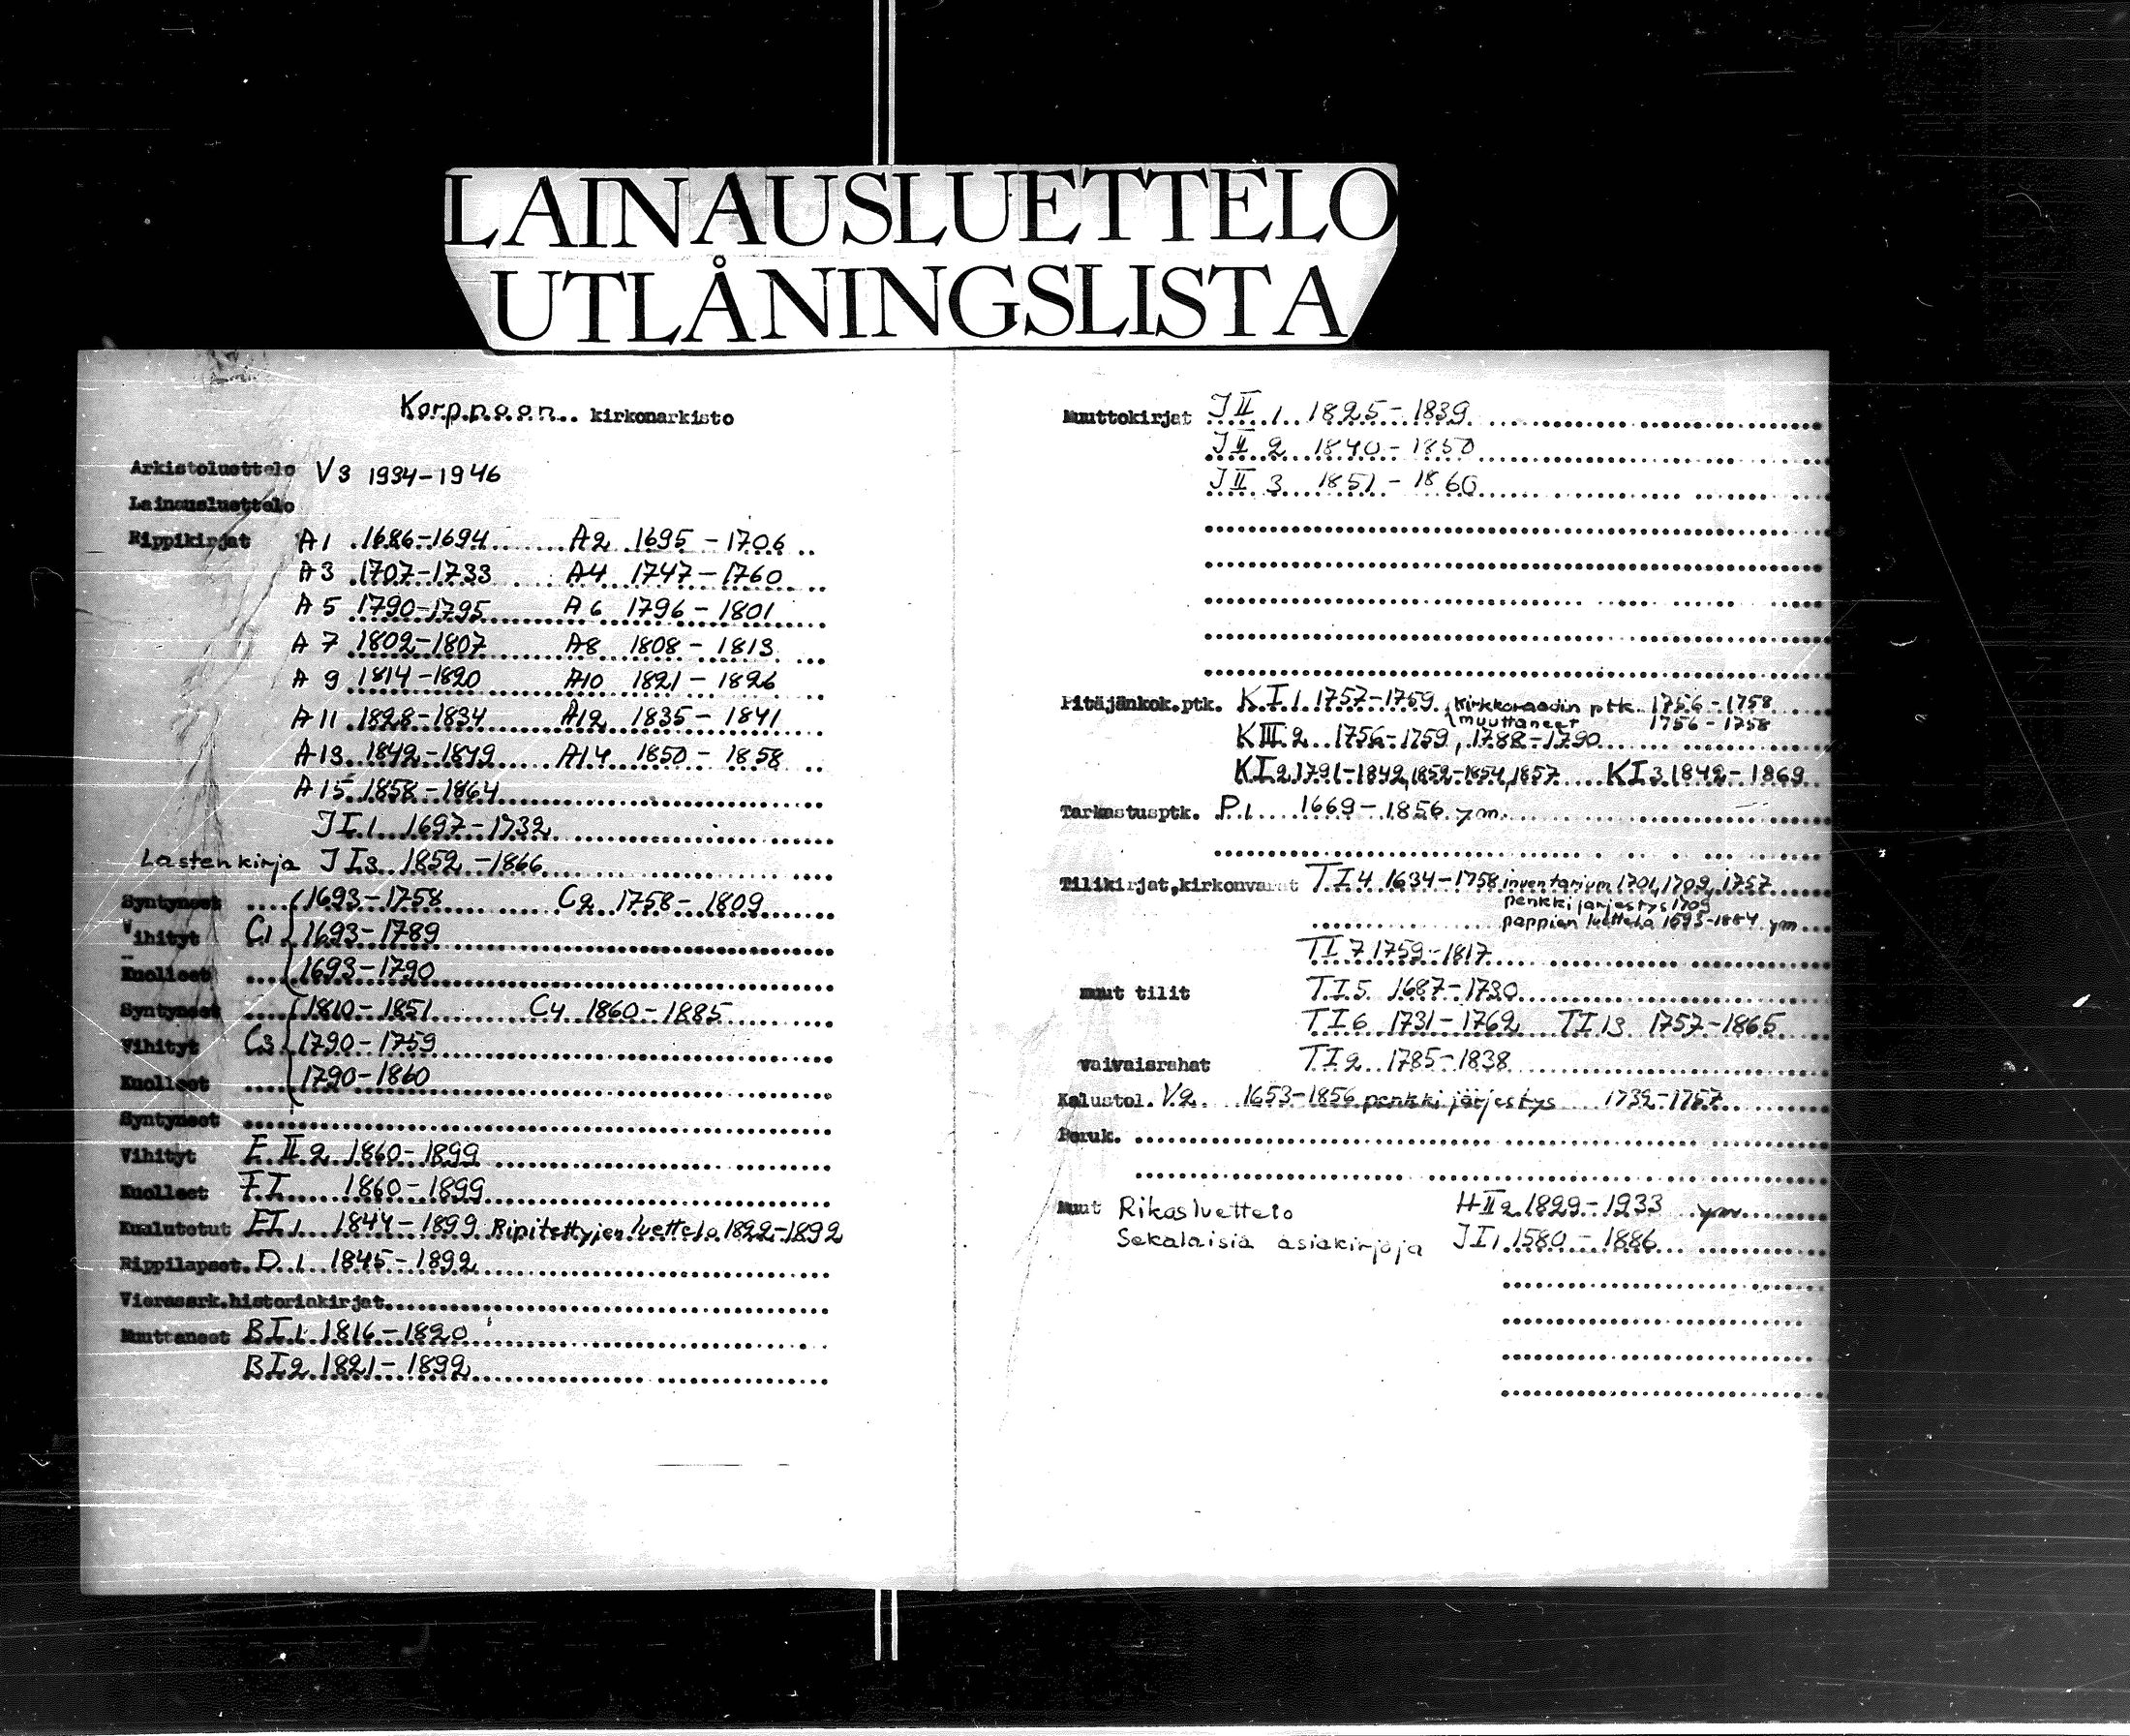 LAINAUSLUETTELO
UTLÅNINGSLISTA
Korpnoon kirkonarkisto
Arkistoluettelo V3 1934-1946
Lainausluettelo
Rippikirjat A1 1686-1694 A2 1695-1706
A3 1707-1733 A4 1747-1760
A5 1790-1795 A6 1796-1801
A7 1802-1807 A8 1808-1813
A9 1814-1820 A10 1821-1826
A11 1828-1834 A12 1835-1841
A13 1842-1849 A14 1850-1858
A15 1858-1864
JI.1 1697-1732
Lastenkirja JI3 1852-1866
Syntyneet 1693-1758 C2 1758-1809
Vihityt C1 1693-1789
Kuolleet 1693-1790
Syntyneet 1810-1851 C4 1860-1885
Vihityt C3 1790-1759
Kuolleet 1790-1860
Syntyneet
Vihityt E II 2 1860-1899
Kuolleet F I 1860-1899
Kuulutetut EI1 1844-1899 Ripitettyjen luettelo 1822-1892
Rippilapset D1 1845-1892
Vierasark.historiakirjat
Muuttaneet BI1 1816-1820
BI2 1821-1899
Muuttokirjat JII 1 1825-1839
JII 2 1840-1850
JII 3 1851-1860
Pitäjänkok.ptk. KI1 1757-1759 kirkkoraadin ptk. 1756-1758
muuttaneet 1756-1758
KIII2 1756-1759, 1788-1790
KI2 1791-1842, 1852-1854, 1857 KI3 1842-1869
Tarkastusptk. P1 1669-1856 ym.
Tilikirjat,kirkonvarat TI4 1634-1758 inventarium 1701, 1709, 1757
penkkijärjestys 1709
pappien luettelo 1693-1884 ym
TI7 1759-1817
muut tilit TI5 1687-1730
TI6 1731-1762 TI13 1757-1865
vaivaisrahat TI2 1785-1838
Kalustol. V2 1653-1856 penkkijärjestys 1732-1757
Peruk.
Muut Rikosluettelo HII2 1829-1933 ym
Sekalaisia asiakirjoja JI1 1580-1886